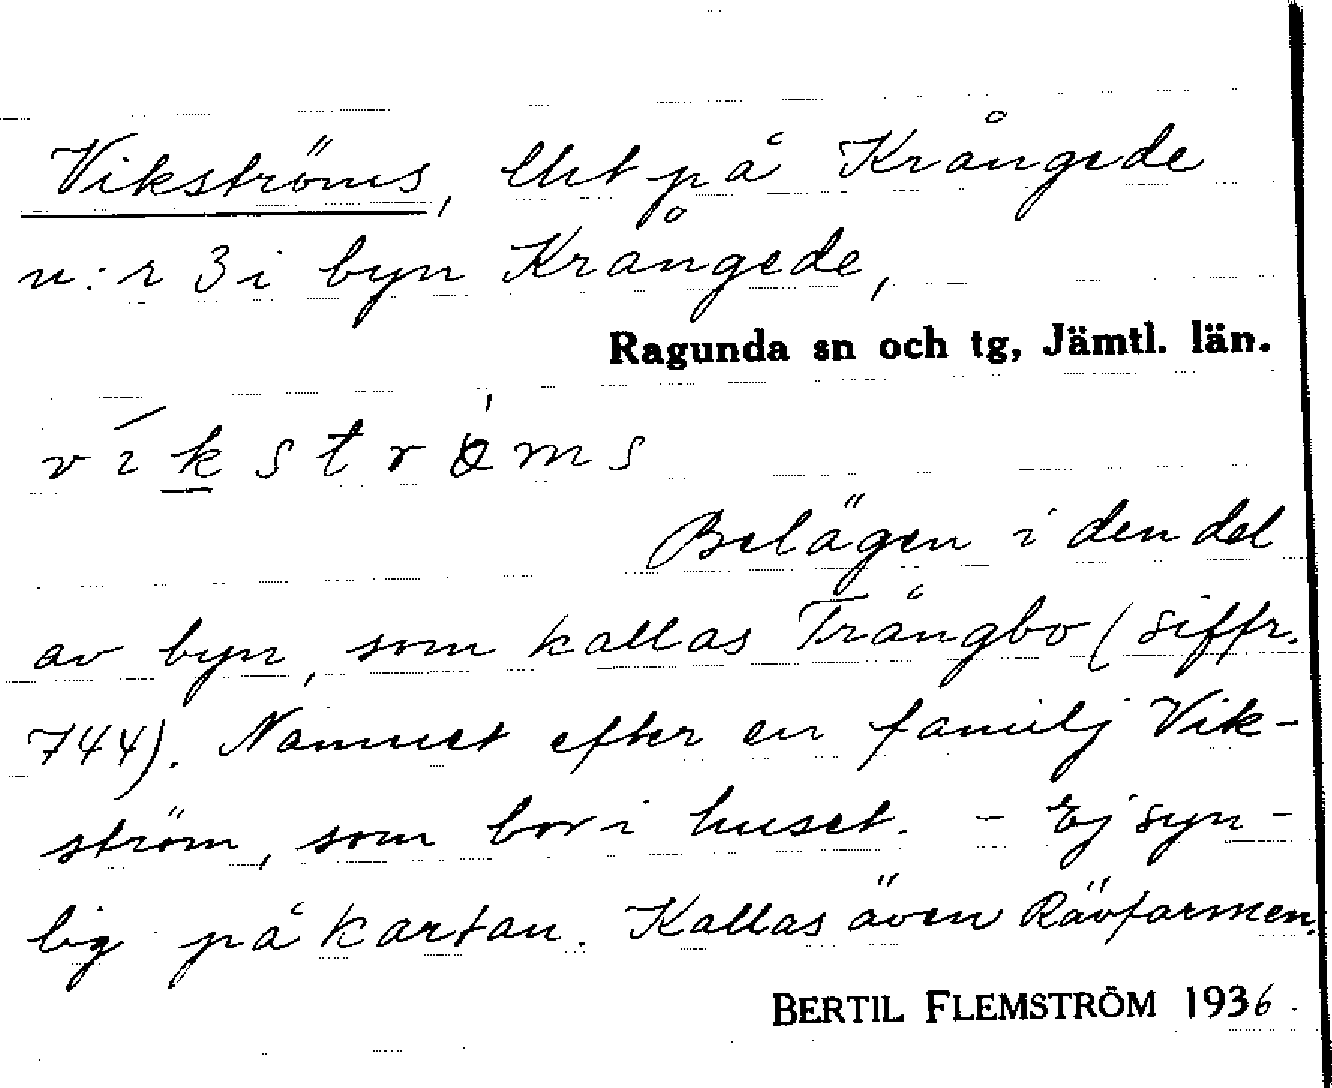 Vikströms, lht på Krångede
n:r 3 i byn Krångede,
Ragunda sn och tg, Jämtl. län.
víkströ̀ms
Belägen i den del
av byn, som kallas Trångbo (siffr.
744). Namnet efter en familj Vik-
ström, som bor i huset. - Ej syn-
lig på kartan. Kallas även Rävfarmen.
BERTIL FLEMSTRÖM 1936.